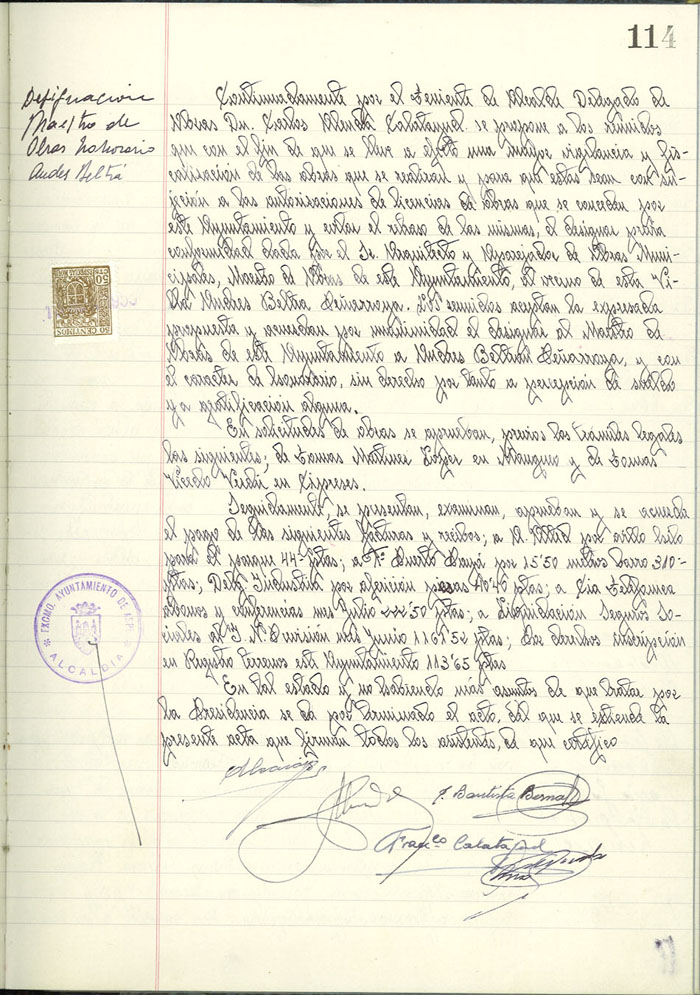 114
Designación
Maestro de
Obras honorario
Andes Beltrá
Continuadamente por el Teniente de Alcalde Delegado de
Obras Dn. Carlos Calatayud se propone a los reunidos
que con el fin de que se lleve a efecto una mayor vigilancia y fis-
calización de las obras que se realizan y para que estas sean con su-
jeción a las autorizaciones de licencias de obras que se conceden por
este Ayuntamiento y evitar el rebaso de las mismas, el designar previa
conformidad dada por el Sr. Arquitecto y Aparejador de Obras Muni-
cipales, Maestro de Obras de este Ayuntamiento, al vecino de esta Vi-
lla Andres Beltrá Peñarroya. Los reunidos aceptan la expresada
propuesta y acuerdan por unanimidad el designar al Maestro de
Obras de este Ayuntamiento a Andres Beltrán Peñarroya, y con
el caracter de honorario, sin derecho por tanto a percepción de sueldo
y/o gratificación alguna.
En solicitudes de obras se aprueban, previos los trámites legales
las siguientes; de Tomas Martinez López en y de Tomas
Vicedo Verdú en Cipreses.
Seguidamente, se presentan, examinan, aprueban y se acuerda
el pago de las siguientes facturas y recibos; a por
para el parque 44- ptas; a Puerto Payá por 15'50 metros barro 310-
ptas; Deleg. Industria por afericion pesas 40'40 ptas; a Cia Telefonica
abonos y conferencias mes Julio 222'50 ptas; a Liquidación Seguros So-
ciales al I. N. Previsión mes Junio 1161'52 ptas; Por derechos inscripción
en Registro terrenos este Ayuntamiento 113'65 ptas
En tal estado y no habiendo más asuntos de que tratar por
la Presidencia se da por terminado el acto, del que se extiende la
present acta que firman todos los asistents, de que certifico
50 CENTIMOS
50 CTS
EXCMO. AYUNTAMIENTO DE ASPE
ALCALDIA
J. Bautista Bernab
Franco Calatayud